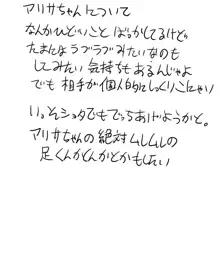 アリサちゃんについて
なんかひどいことばっかしてるけど。
たまにはラブラブみたいなのも
してみたい気持ちもあるんじゃよ
でも相手が個人的にしっくりこにゃい
い。そショタでもでっちあげようかと。
アリサちゃんの絶対ムレムレの
足くんかくんかとかもしたい